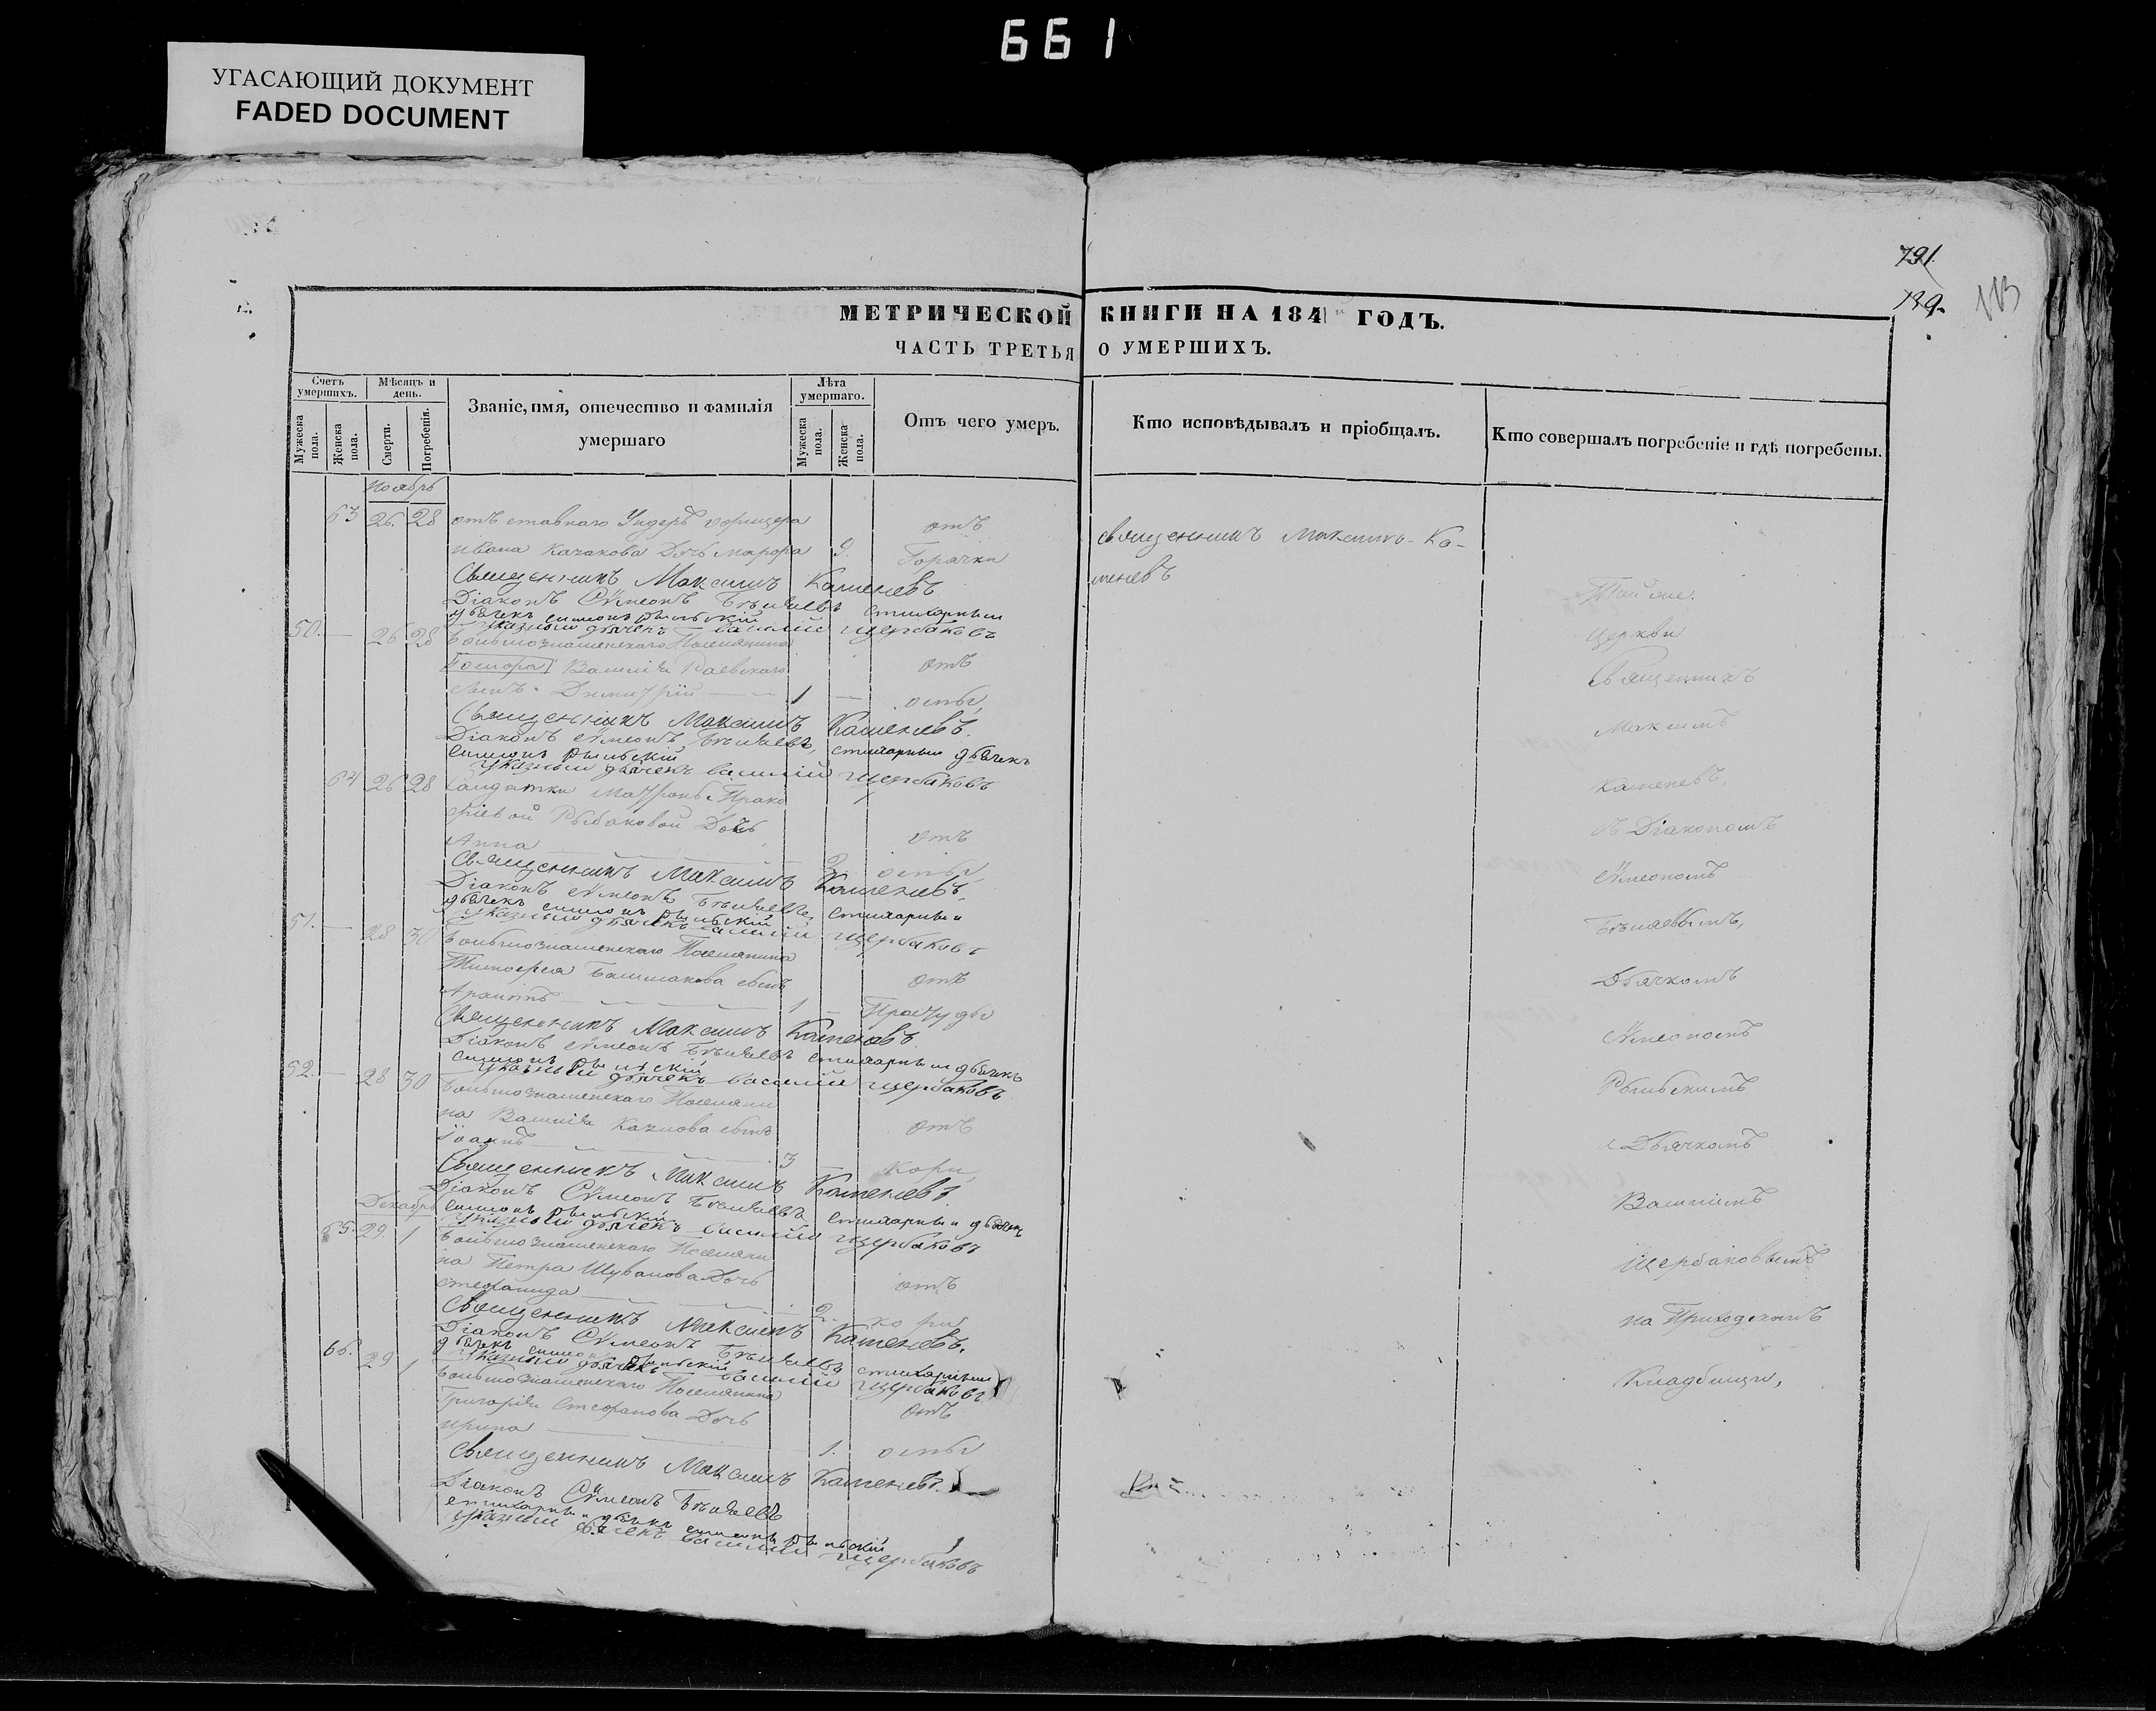 661
УГАСАЮЩИЙ ДОКУМЕНТ
FADED DOCUMENT
791.
139.
113
МЕТРИЧЕСКОЙ КНИГИ НА 1841й ГОДЪ.
ЧАСТЬ ТРЕТЬЯ О УМЕРШИХЪ.
Счетъ умершихъ.
Мужеска пола.
Женска пола.
Мѣсяцъ и день.
Смерти.
Погребенія.
Званіе, имя, отечество и фамилія умершаго
Лѣта умершаго.
Мужеска пола.
Женска пола.
Отъ чего умеръ.
Кто исповѣдывалъ и пріобщалъ.
Кто совершалъ погребеніе и гдѣ погребены.
Ноябрь
63 26. 28 отъ ставнаго Ундеръ офицера отъ
Ивана Качакова Дочь Марфа 9. Горячки
Священникъ Максимъ Каменевъ
Діаконъ Сѵмеонъ Бѣляевъ стихарный
дьячекъ симеонъ рыльскій
Указный дьячекъ василій щербаковъ
50. — 26 28 Большознаменскаго Поселянина
Василія Раевскаго отъ
сынъ Димитрій — 1 — оспы,
Священникъ Максимъ Каменевъ.
Діаконъ Сѵмеонъ Бѣляевъ, стихарный дьячекъ
симеонъ рыльскій
Указный дьячекъ василій щербаковъ
64 26 28 Солдатки Матроны Проко
фіевой Рыбаковой Дочь отъ
Анна — 2 оспы,
Священникъ Максимъ Каменевъ.
Діаконъ Сѵмеонъ Бѣляевъ, стихарный
дьячекъ симеонъ рыльскій
Указный дьячекъ василій щербаковъ
51. — 28 30 Большознаменскаго Поселянина
Тимофея Башмакова сынъ отъ
Архипъ — 1 — Простуды
Священникъ Максимъ Каменевъ.
Діаконъ Сѵмеонъ Бѣляевъ стихарный дьячекъ
симеонъ рыльскій
Указный дьячекъ василій щербаковъ
52. — 28 30 Большознаменскаго Поселяни
на Василія Козлова сынъ отъ
Іоаннъ — 3 — кори,
Священникъ Максимъ Каменевъ
Діаконъ Сѵмеонъ Бѣляевъ стихарный дьячекъ
Декабрь симеонъ рыльскій
Указный дьячекъ василій щербаковъ
65. 29. 1 Большознаменскаго Поселяни
на Петра Шувалова Дочь отъ
Стефанида — 2. кори
Священникъ Максимъ Каменевъ.
Діаконъ Сѵмеонъ Бѣляевъ стихарный
дьячекъ симеонъ рыльскій
Указный дьячекъ василій щербаковъ
66. 29 1 Большознаменскаго Поселянина
Григорія Стефанова Дочь отъ
Ирина — 1. оспы
Священникъ Максимъ Каменевъ.
Діаконъ Сѵмеонъ Бѣляевъ
стихарный дьячекъ симеонъ рыльскій
Указный дьячекъ василій щербаковъ
священникъ Максимъ Ка-
меневъ
Той же.
Церкви
Священникъ
Максимъ
Каменевъ,
съ Діакономъ
Сѵмеономъ
Бѣляевымъ,
Дьячкомъ
Сѵмеономъ
Рыльскимъ
и Дьячкомъ
Василіемъ
Щербаковымъ
на Приходскомъ
Кладбищи,